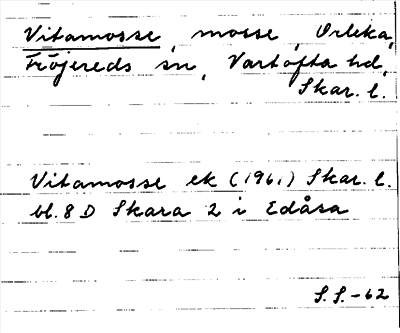 Vitamosse, mosse, Orleka,
Fröjereds sn, Vartofta hd,
Skar. l.
Vitamosse ek (1961) Skar. l.
bl. 8 D Skara 2 i Edåsa
S.S.-62